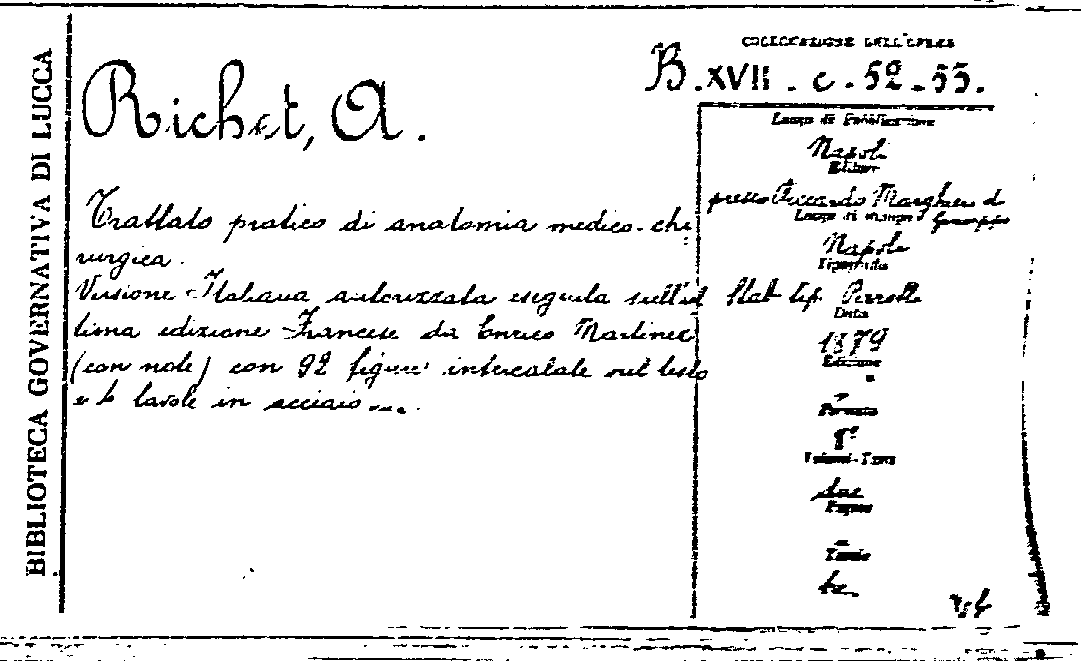 BIBLIOTECA GOVERNATIVA DI LUCCA
COLLOCAZIONE DELL'OPERA
B. XVII. c. 52-53.
Richet, A.
Trattato pratico di anatomia medico-chi
rurgica.
Versione Italiana autorizzata eseguita sull'ul
tima edizione Francese da Enrico Martinez
(con note) con 92 figure intercalate nel testo
e tavole in acciaio....
Luogo di Pubblicazione
Napoli
Editore
presso Riccardo Marghieri di
Luogo di stampa
Napoli
Tipografia
Stab. tip. Perrotti
Data
1879
Edizione
Formato
8º
Volumi-Tomi
due
Pagine
Tavole